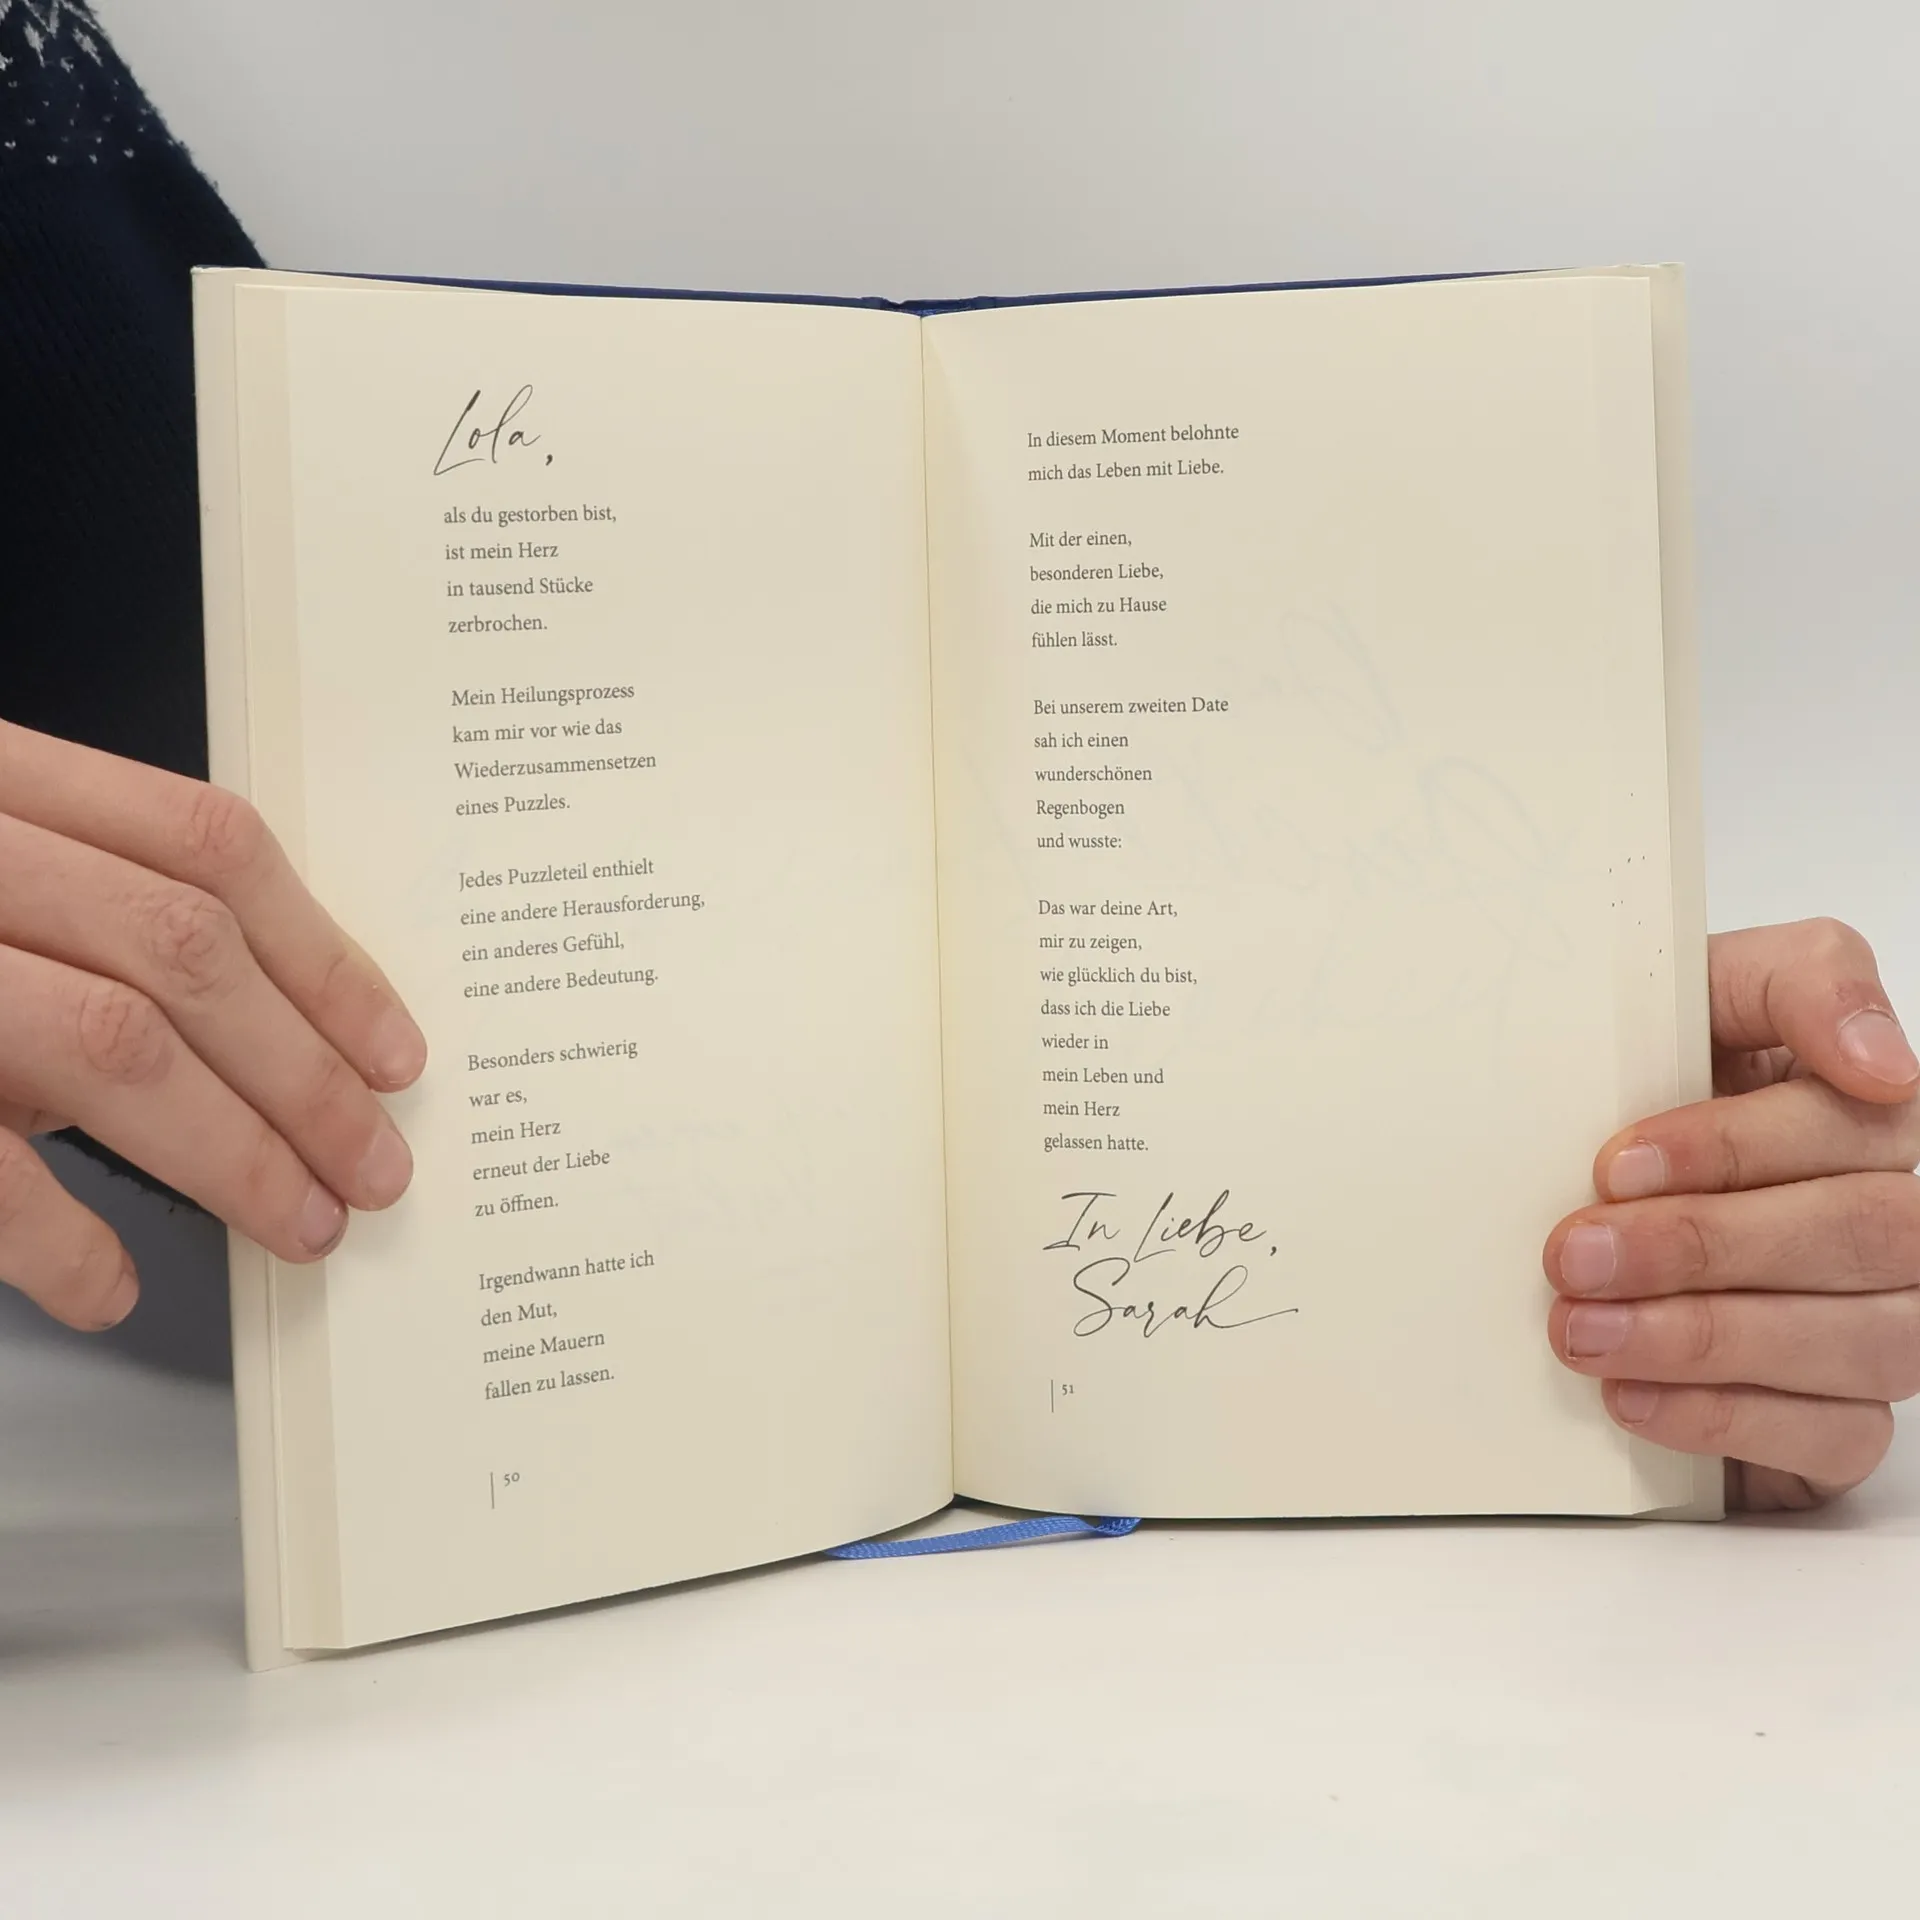 Lola,
als du gestorben bist,
ist mein Herz
in tausend Stücke
zerbrochen.
Mein Heilungsprozess
kam mir vor wie das
Wiederzusammensetzen
eines Puzzles.
Jedes Puzzleteil enthielt
eine andere Herausforderung,
ein anderes Gefühl,
eine andere Bedeutung.
Besonders schwierig
war es,
mein Herz
erneut der Liebe
zu öffnen.
Irgendwann hatte ich
den Mut,
meine Mauern
fallen zu lassen.
50
In diesem Moment belohnte
mich das Leben mit Liebe.
Mit der einen,
besonderen Liebe,
die mich zu Hause
fühlen lässt.
Bei unserem zweiten Date
sah ich einen
wunderschönen
Regenbogen
und wusste:
Das war deine Art,
mir zu zeigen,
wie glücklich du bist,
dass ich die Liebe
wieder in
mein Leben und
mein Herz
gelassen hatte.
In Liebe,
Sarah
51